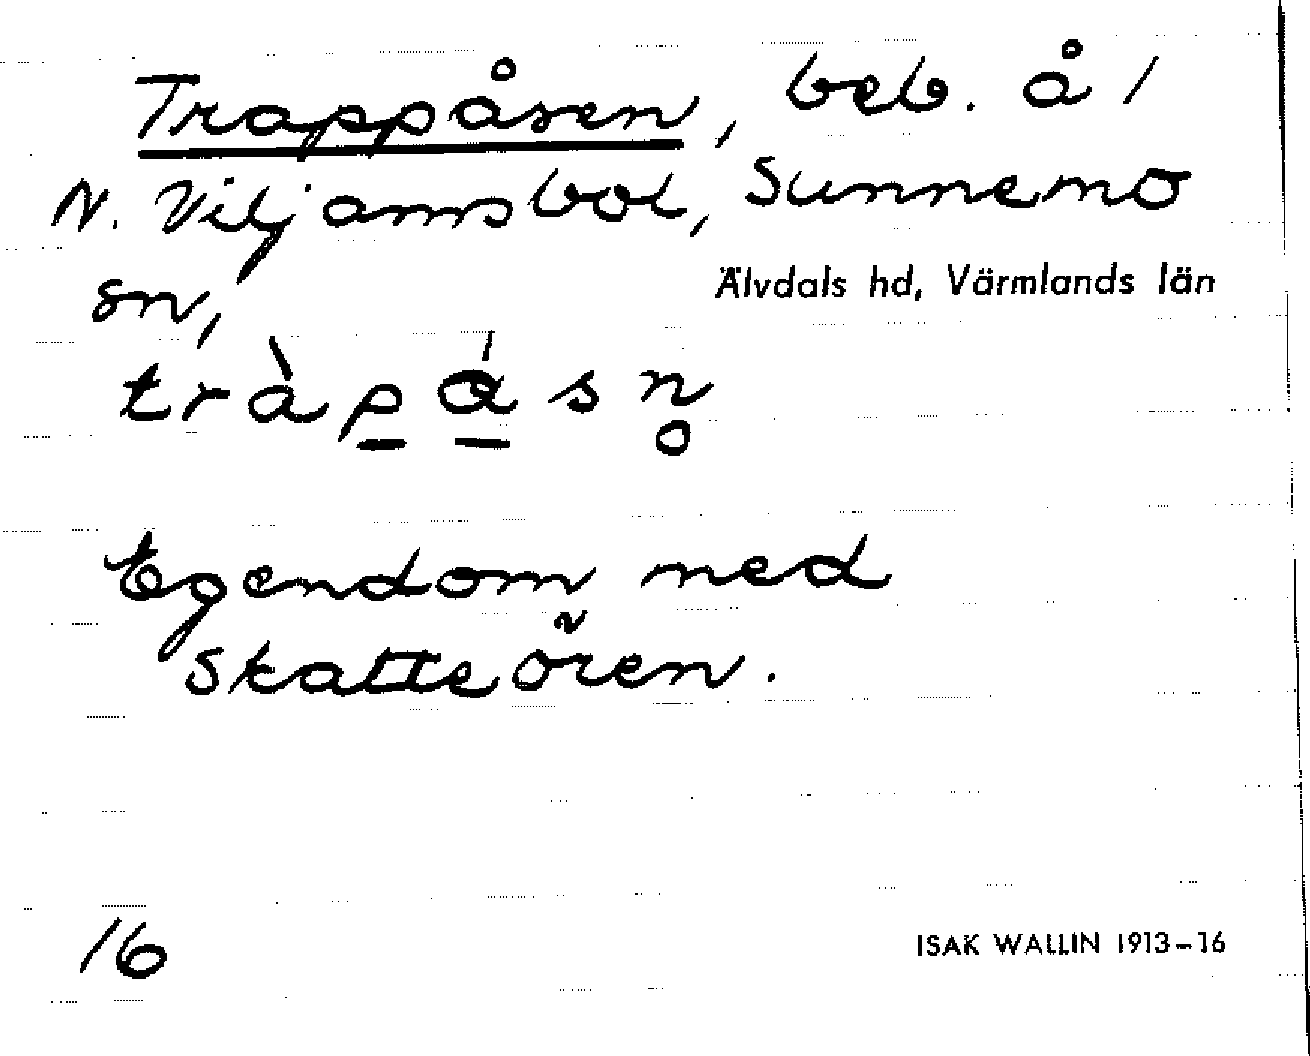 Trappåsen, beb. å /
N. Viljamsbol, Sunnemo
sn,
Älvdals hd, Värmlands län
tràpásn̥
Egendom med
skatteören.
16
ISAK WALLIN 1913–16